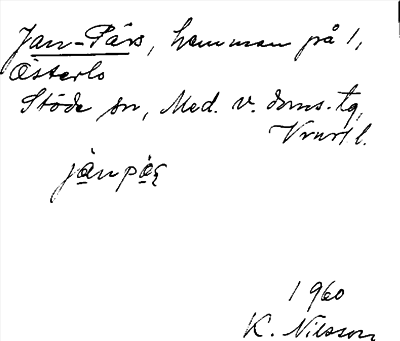 Jan-Pärs, hemman på 1,
Österlo
Stöde sn, Med. v. doms. tg,
Vrnrl l.
janpäʂ
1960
K. Nilsson